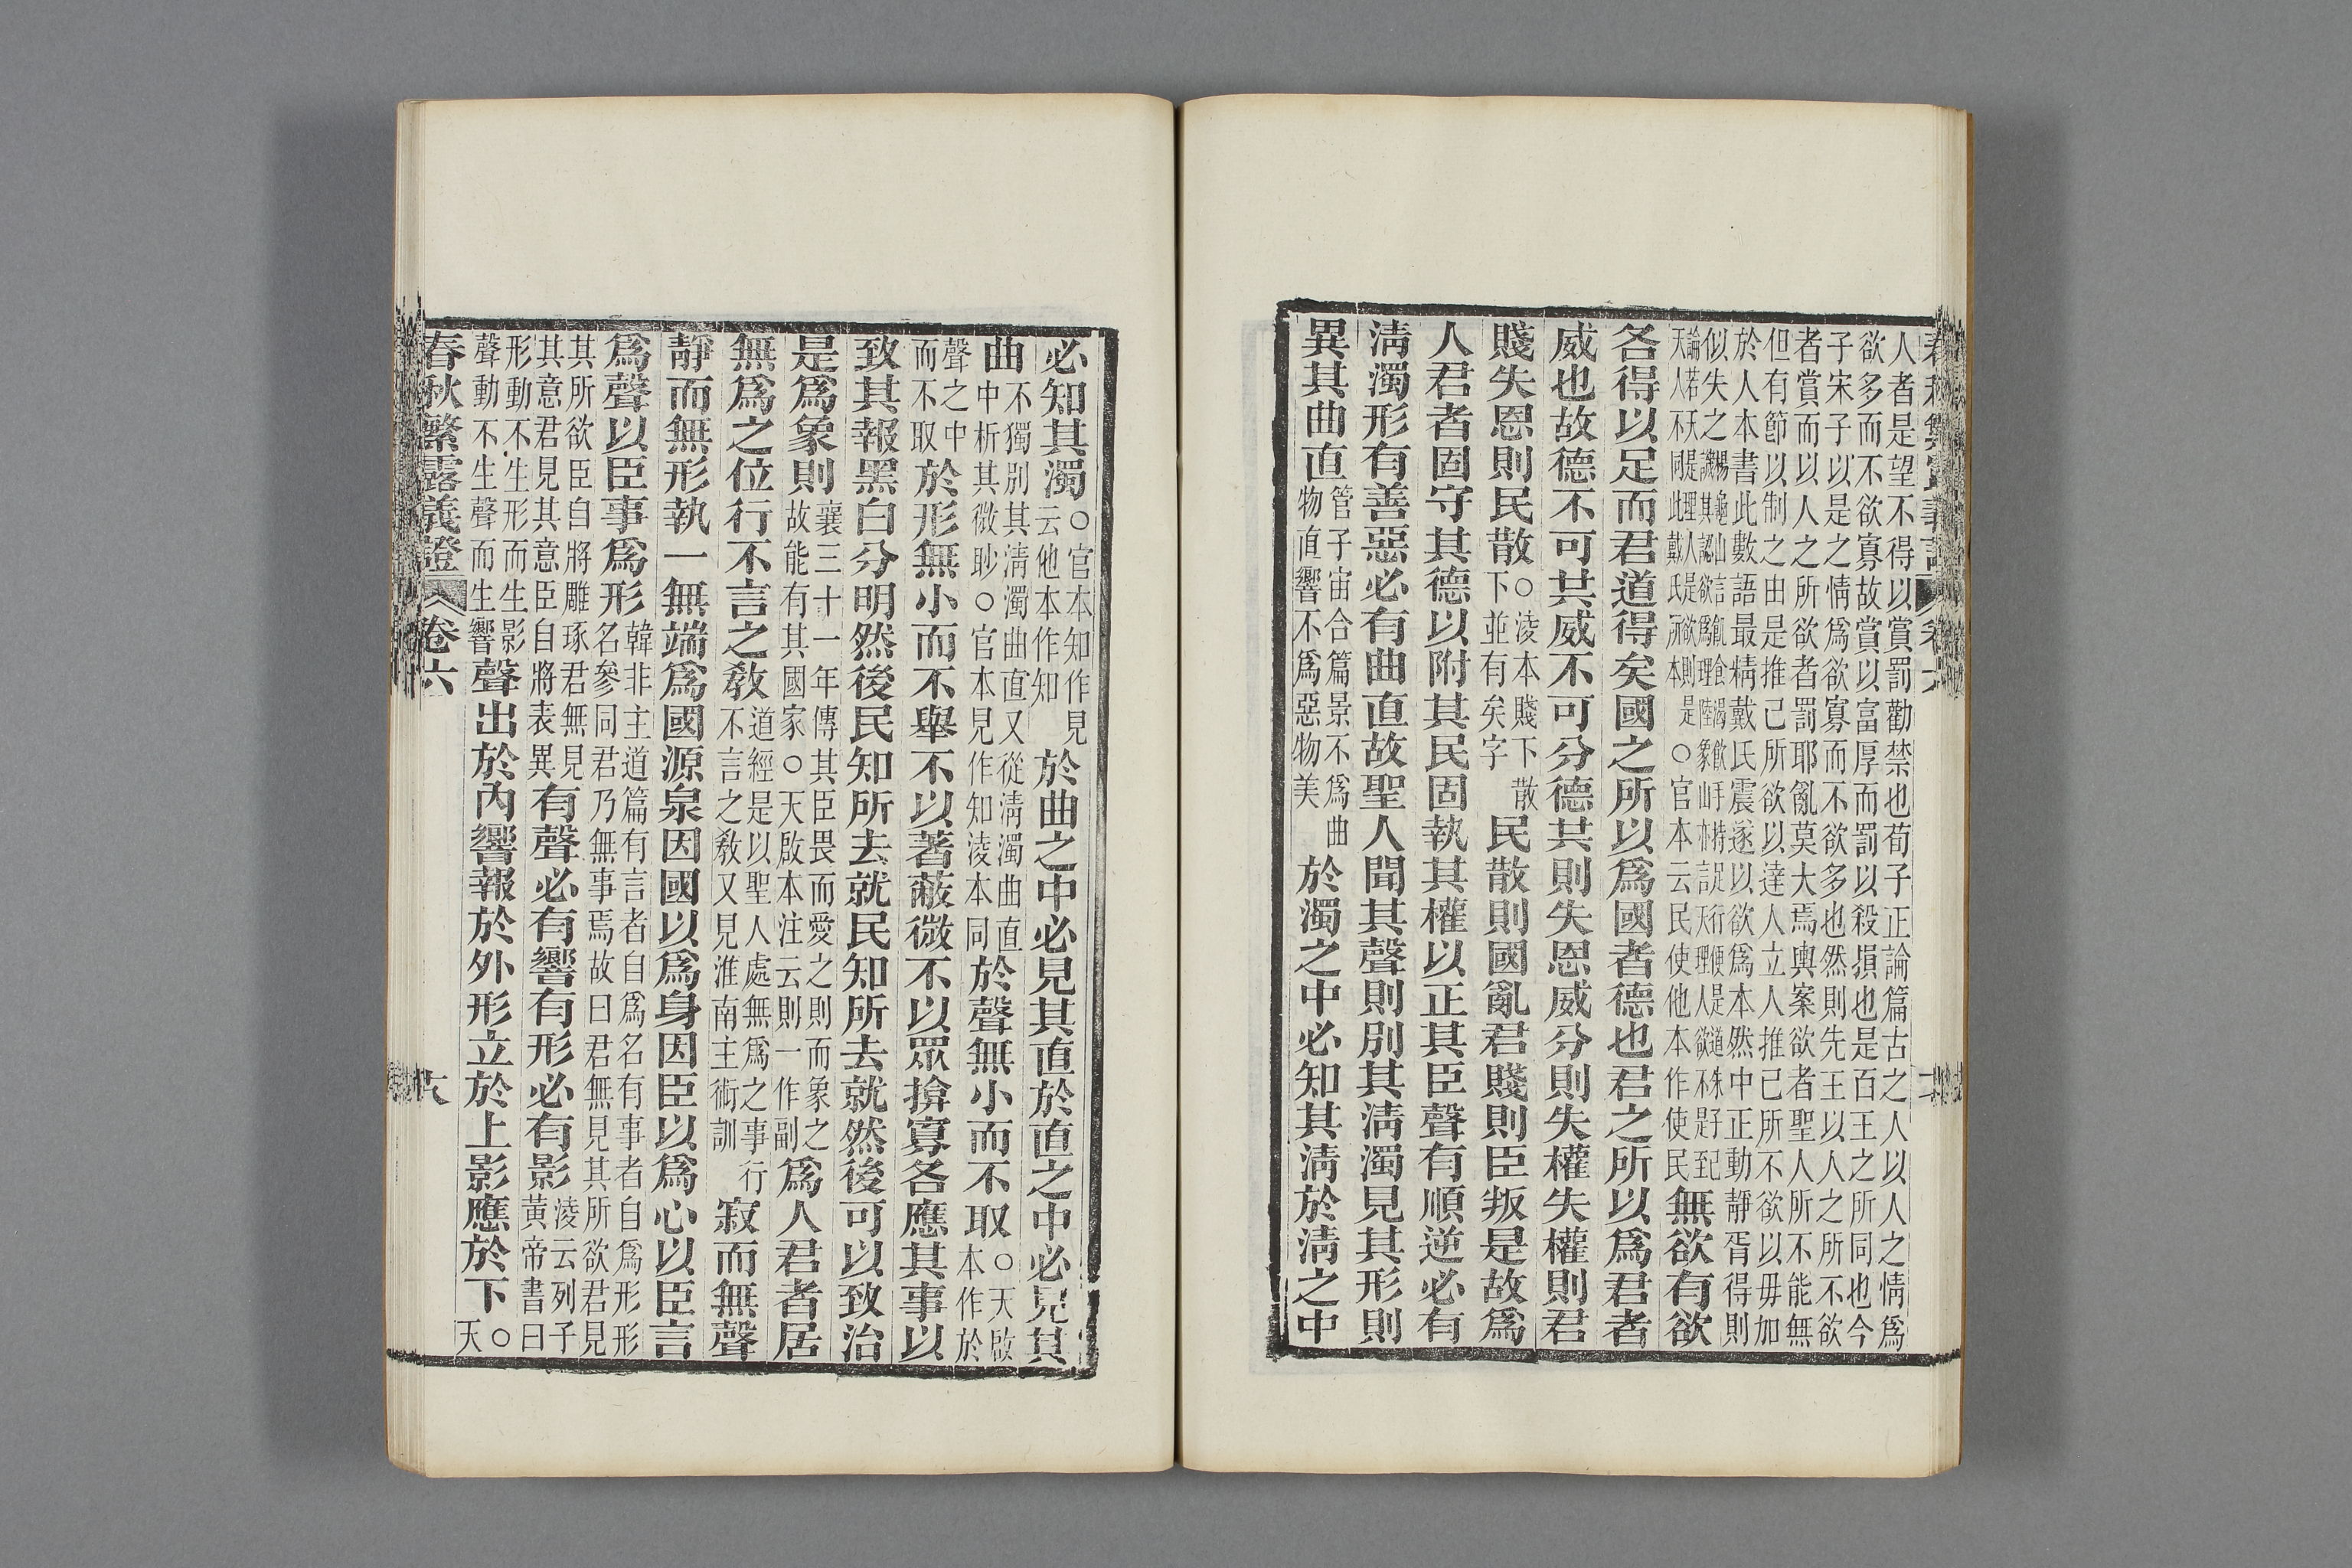 人者是望不得以賞罰勸禁也荀子正論篇古之人以人之情爲
欲多而不欲寡故賞以富厚而罰以殺損也是百王之所同也今
子宋子以是之情爲欲寡而不欲多也然則先王以人之所不欲
者賞而以人之所欲者罰耶亂莫大焉輿案欲者聖人所不能無
但有節以制之由是推己所欲以達人立人推己所不欲以毋加
於人本書此數語最精戴氏震遂以欲爲本然中正動靜胥得則
似失之
天人不同此戴氏所本 是○官本云民使他本作使民無欲有欲
各得以足而君道得矣國之所以爲國者德也君之所以爲君者
威也故德不可共威不可分德共則失恩威分則失權失權則君
賤失恩則民散○淩本賤下散
下並有矣字民散則國亂君賤則臣叛是故爲
人君者固守其德以附其民固執其權以正其臣聲有順逆必有
淸濁形有善惡必有曲直故聖人聞其聲則別其淸濁見其形則
異其曲直管子宙合篇景不爲曲
物直響不爲惡物美於濁之中必知其淸於淸之中
必知其濁○官本知作見
云他本作知於曲之中必見其直於直之中必見其
曲不獨別其淸濁曲直又從淸濁曲直
中析其微眇○官本見作知淩本同於聲無小而不取○天啟
本作於
聲之中
而不取於形無小而不舉不以著蔽微不以眾揜寡各應其事以
致其報黑白分明然後民知所去就民知所去就然後可以致治
是爲象則襄三十一年傳其臣畏而愛之則而象之
故能有其國家○天啟本注云則一作副爲人君者居
無爲之位行不言之敎道經是以聖人處無爲之事行
不言之敎又見淮南主術訓寂而無聲
靜而無形執一無端爲國源泉因國以爲身因臣以爲心以臣言
爲聲以臣事爲形韓非主道篇有言者自爲名有事者自爲形形
名參同君乃無事焉故曰君無見其所欲君見
其所欲臣自將雕琢君無見
其意君見其意臣自將表異有聲必有響有形必有影淩云列子
黃帝書曰
形動不生形而生影
聲動不生聲而生響聲出於內響報於外形立於上影應於下○
天
春秋繁露義證 卷六 十八